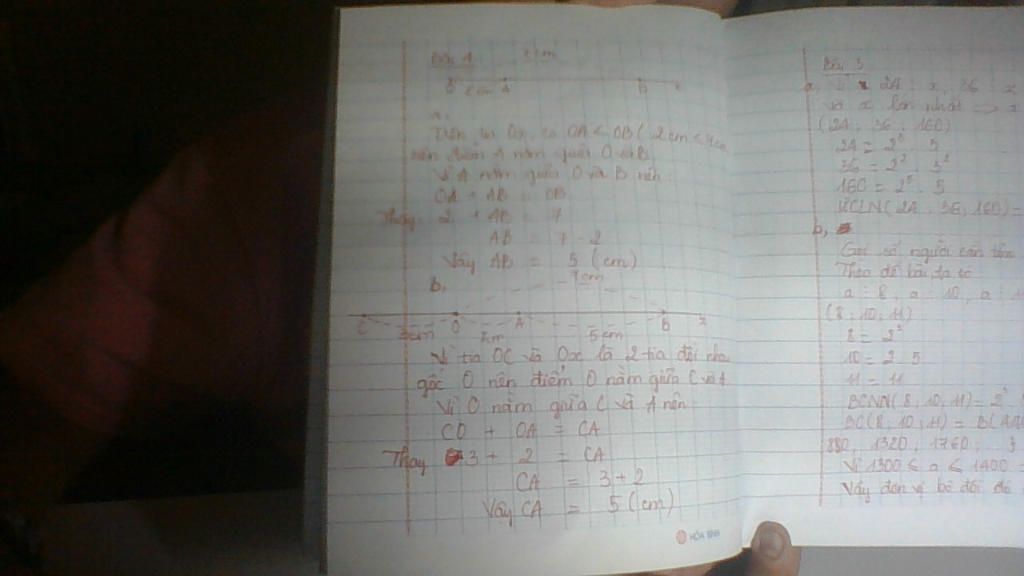 Bài 4
7cm
O 2cm A B x
a,
Trên tia Ox, ta có OA < OB ( 2cm < 7cm
nên điểm A nằm giữa O và B
Vì A nằm giữa O và B nên
OA + AB = OB
Thay 2 + AB = 7
AB = 7 - 2
Vậy AB = 5 (cm)
b,
7cm
C O A B x
3cm 2cm 5cm
Vì tia OC và Ox là 2 tia đối nha
gốc O nên điểm O nằm giữa C và A
Vì O nằm giữa C và A nên
CO + OA = CA
Thay 3 + 2 = CA
CA = 3 + 2
Vậy CA = 5 (cm)
HÒA BÌNH
Bài 3
a, Vì 24 : x, 36 : x
và x lớn nhất => x
(24, 36, 160)
24 = 2³ . 3
36 = 2² . 3²
160 = 2⁵ . 5
ƯCLN(24, 36, 160) =
b,
Gọi số người cần tìm
Theo đề bài, ta có
a : 8, a : 10, a : 11
(8, 10, 11)
8 = 2³
10 = 2 . 5
11 = 11
BCNN(8, 10, 11) = 2³
BC(8, 10, 11) = B(440
880, 1320, 1760,
Vì 1300 ≤ a ≤ 1400
Vậy đơn vị bộ đội đó